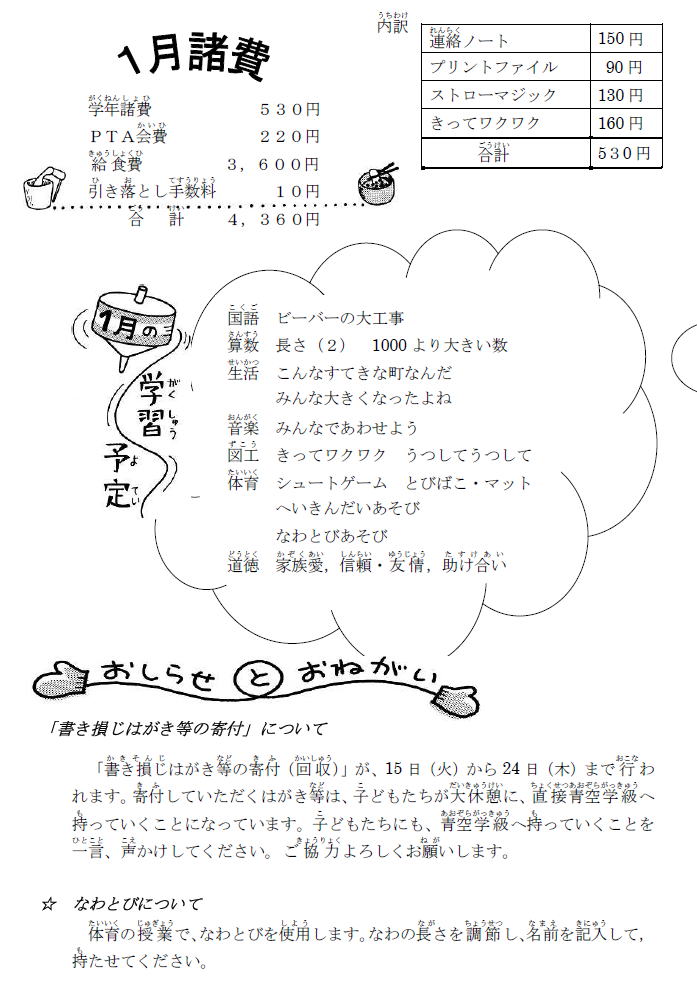 1月諸費
学年諸費 ５３０円
ＰＴＡ会費 ２２０円
給食費 ３，６００円
引き落とし手数料 １０円
合計 ４，３６０円
内訳
連絡ノート 150円
プリントファイル 90円
ストローマジック 130円
きってワクワク 160円
合計 ５３０円
1月の
学習
予定
国語 ビーバーの大工事
算数 長さ（２） 1000より大きい数
生活 こんなすてきな町なんだ
みんな大きくなったよね
音楽 みんなであわせよう
図工 きってワクワク うつしてうつして
体育 シュートゲーム とびばこ・マット
へいきんだいあそび
なわとびあそび
道徳 家族愛，信頼・友情，助け合い
おしらせ と おねがい
「書き損じはがき等の寄付」について
「書き損じはがき等の寄付（回収）」が、15日（火）から24日（木）まで行わ
れます。寄付していただくはがき等は、子どもたちが大休憩に、直接青空学級へ
持っていくことになっています。子どもたちにも、青空学級へ持っていくことを
一言、声かけしてください。ご協力よろしくお願いします。
☆ なわとびについて
体育の授業で、なわとびを使用します。なわの長さを調節し、名前を記入して，
持たせてください。